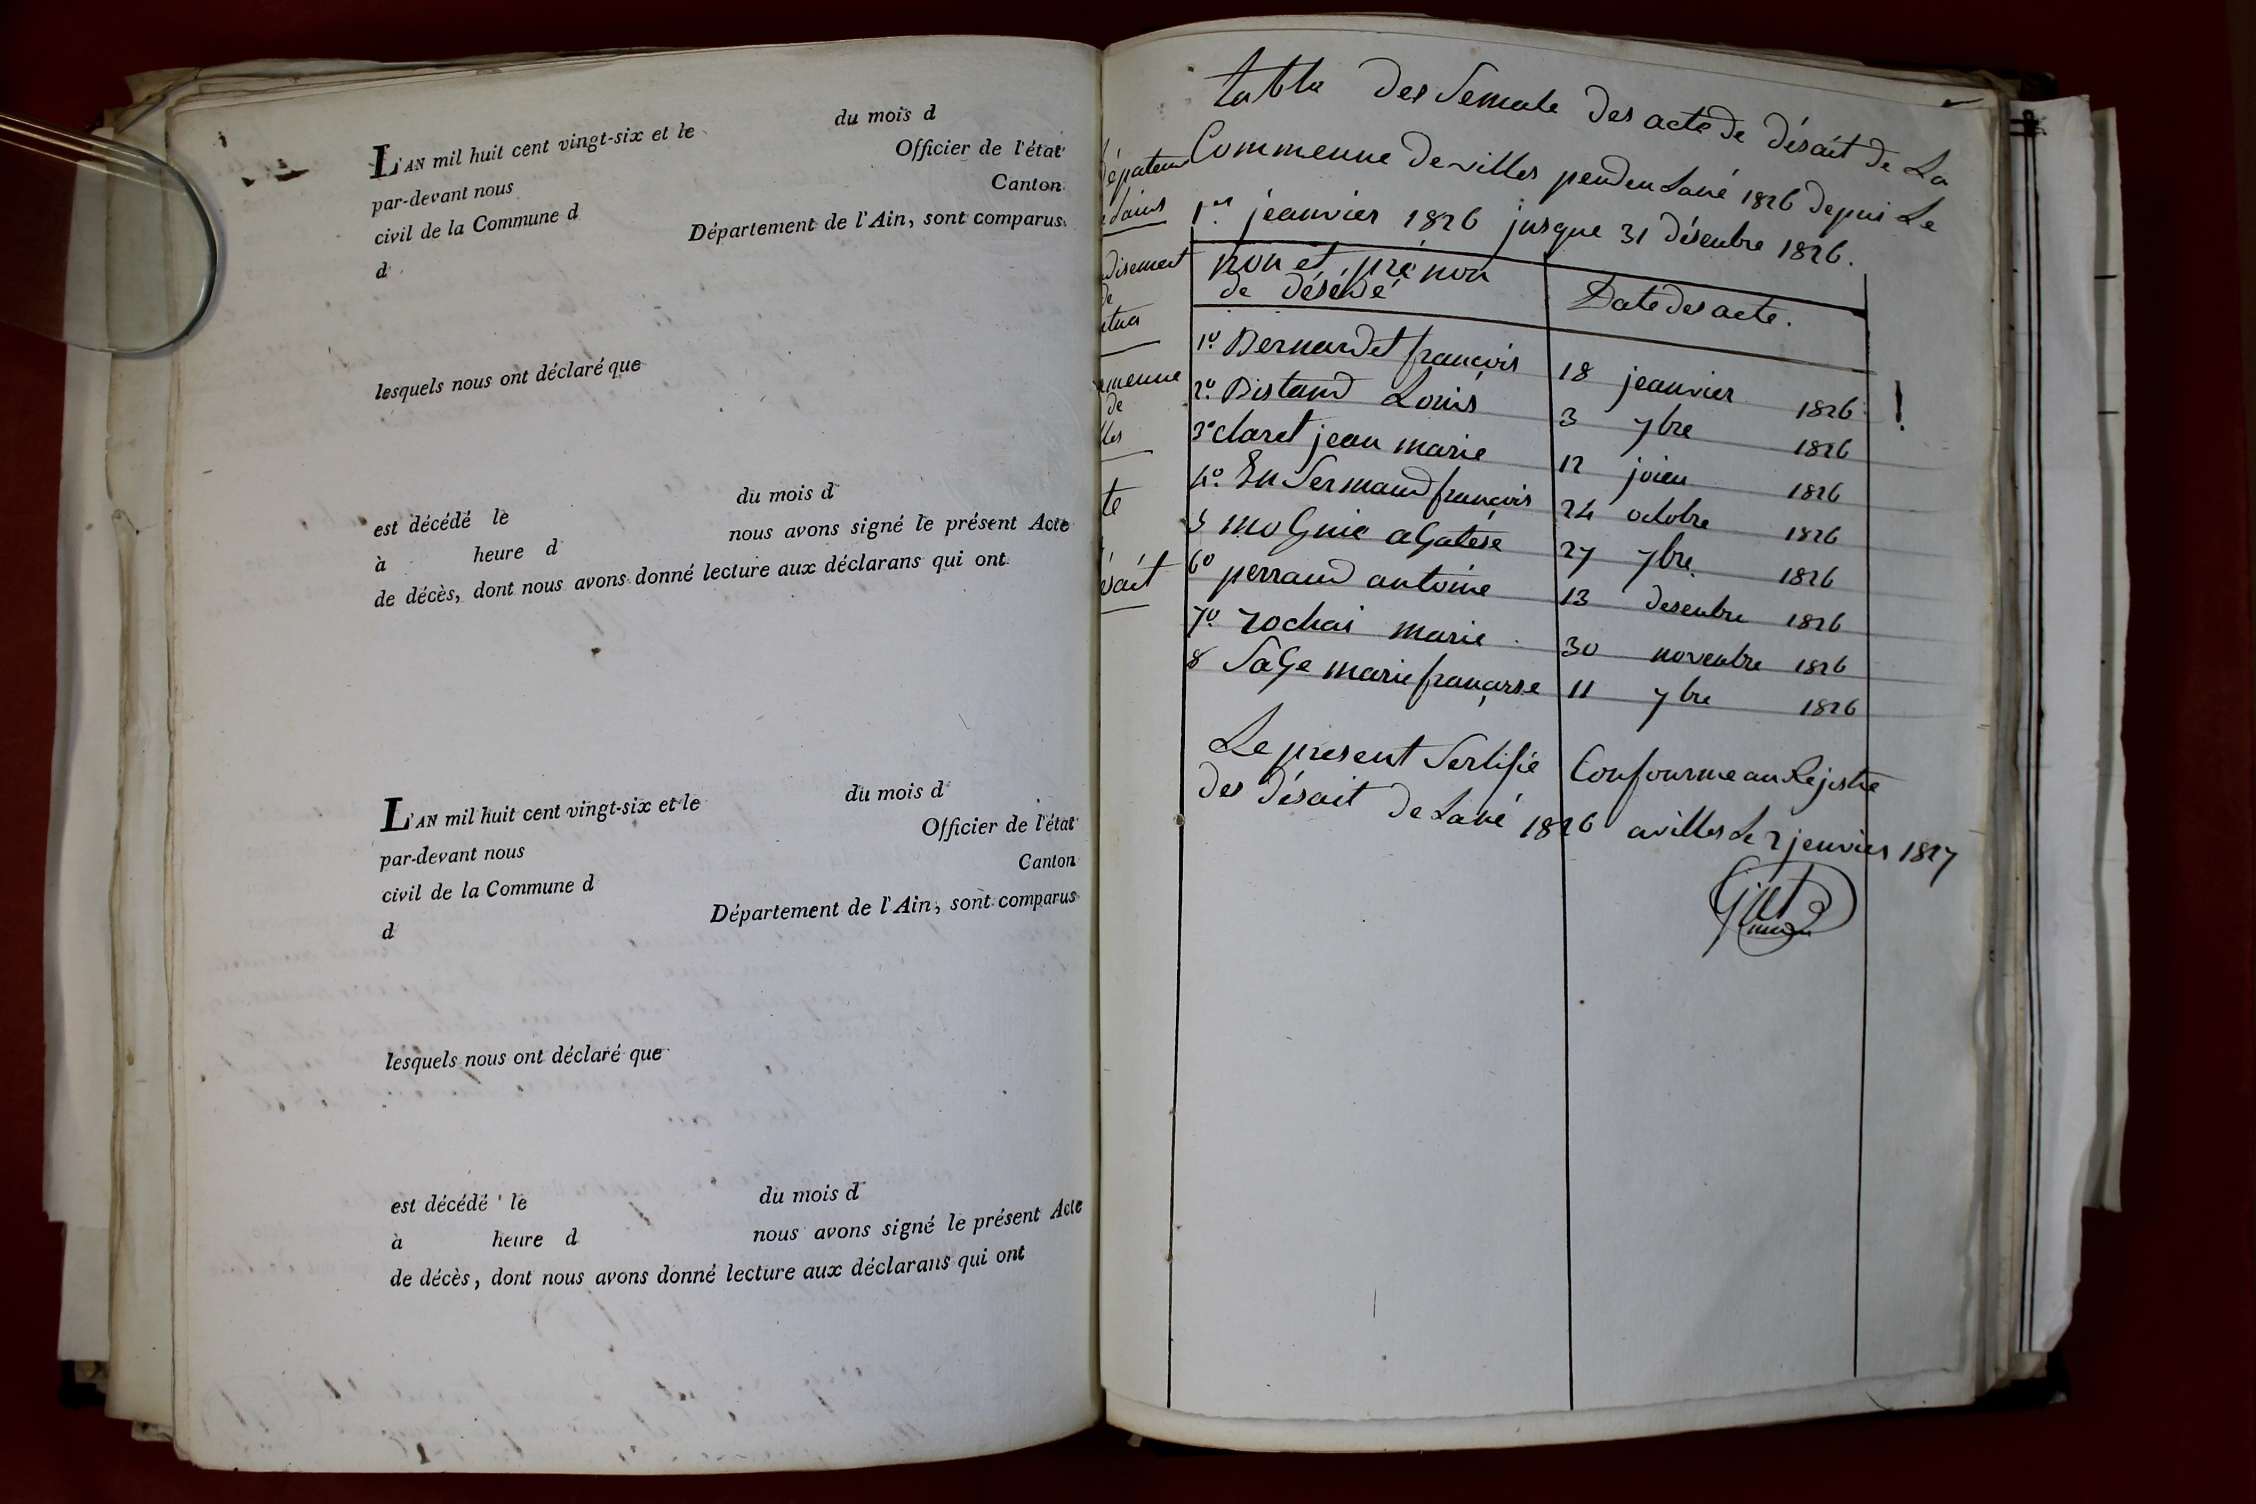 L'AN mil huit cent vingt-six et le du mois d
par-devant nous Officier de l'état
civil de la Commune d Canton
d Département de l'Ain, sont comparus
lesquels nous ont déclaré que
est décédé le du mois d
à heure d nous avons signé le présent Acte
de décès, dont nous avons donné lecture aux déclarans qui ont
L'AN mil huit cent vingt-six et le du mois d
par-devant nous Officier de l'état
civil de la Commune d Canton
d Département de l'Ain, sont comparus
lesquels nous ont déclaré que
est décédé le du mois d
à heure d nous avons signé le présent Acte
de décès, dont nous avons donné lecture aux déclarans qui ont
table des des acte de désait de La
Commeune de villes penden Lané 1826 depui Le
1er jeanvier 1826 jusque 31 désenbre 1826.
non et prénon
de désédé
Date des acte.
1o Bernardet françois 18 jeanvier 1826
2o Distand Louis 3 7bre 1826
3o claret jean marie 12 1826
4o françois 24 octobre 1826
5 27 7bre 1826
6o perraud antoine 13 desenbre 1826
7o rochai marie 30 novenbre 1826
8 Sage marie françoise 11 7bre 1826
Le present Sertifié Confourme au Rejistre
des désait de Lané 1826 a villes Le 2 jenvier 1827